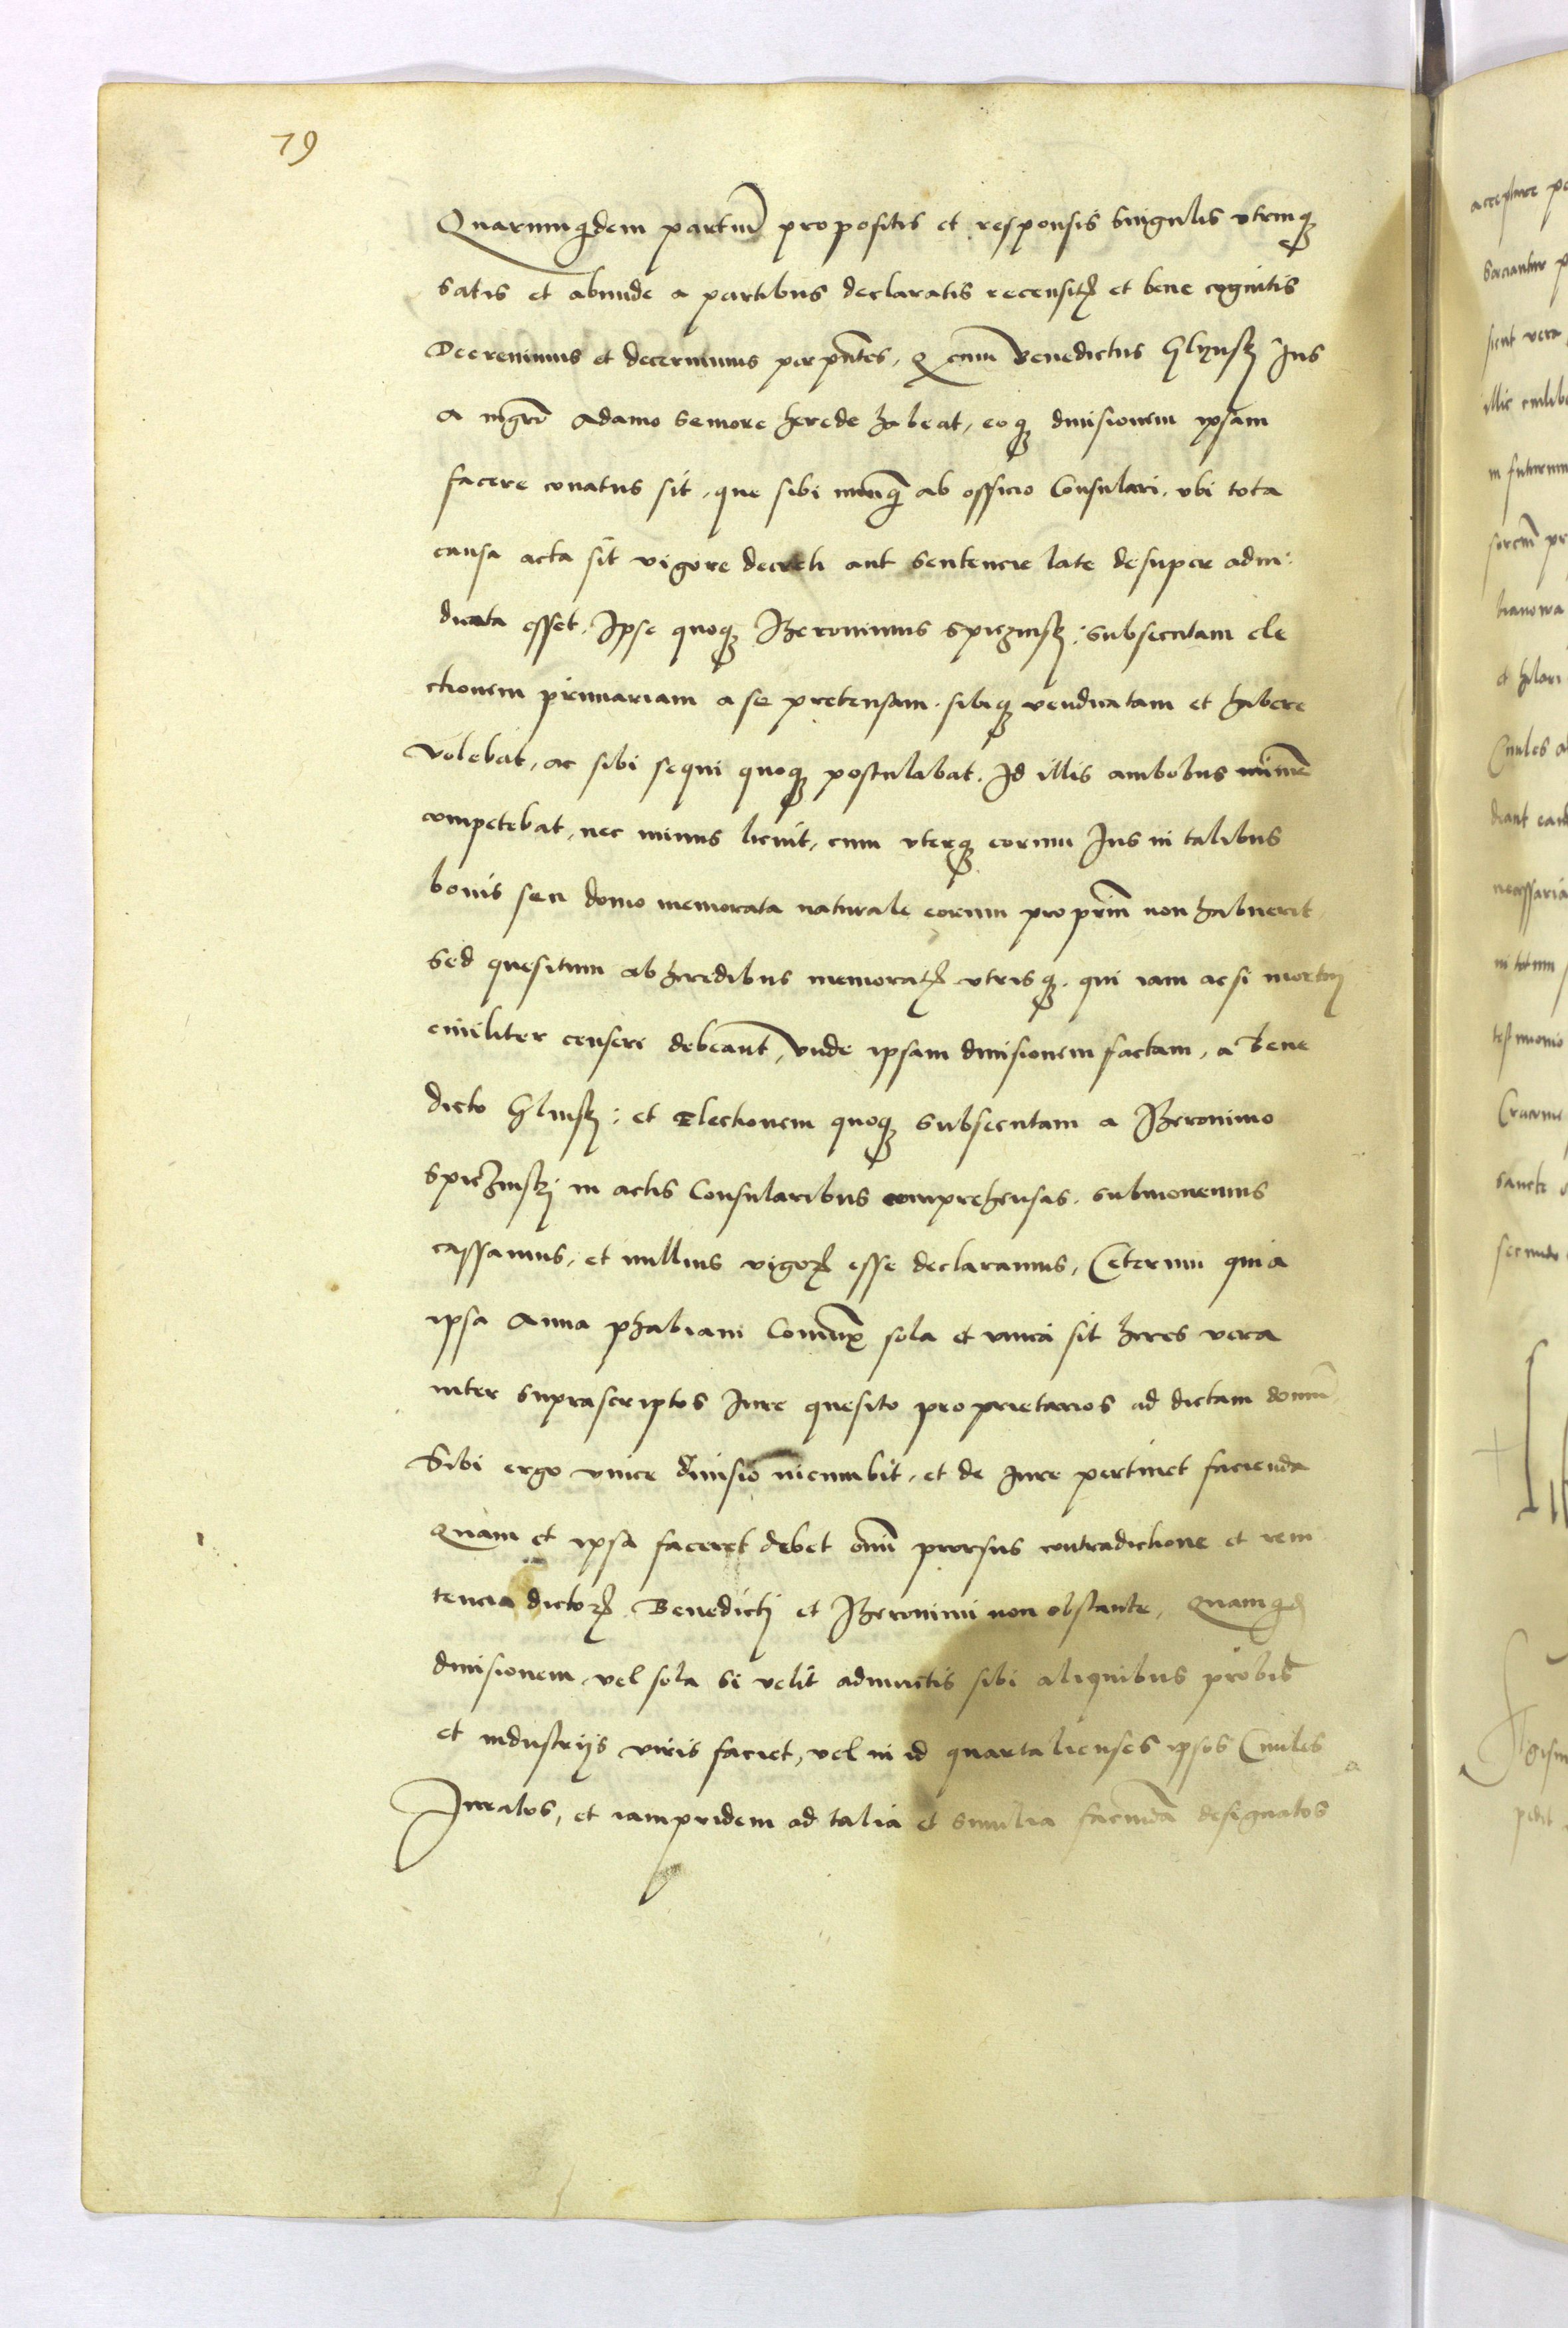 79
Quarumquidem partium propositis et responsis singulis vtrinque
satis et abunde a partibus declaratis recensitis et bene cognitis
Decreuimus et decernimus per presentes, quod cum Benedictus Glynskj Ius
a magistro Adamo seniore herede habeat, eoque diuisionem ipsam
facere conatus sit, que sibi nunquam ab officio Consulari, vbi tota
causa acta sit vigore decreti aut sentencie late desuper adiu:
dicata esset. Ipse quoque Hieronimus Spiczinskj: subsecutam ele
ctionem primariam a se pretensam, sibique vendicatam et habere
volebat, ac sibi sequi quoque postulabat. Id illis ambobus minime
competebat, nec minus licuit, cum vterque eorum Ius in talibus
bonis seu domo memorata naturale eorum proprium non habuerit
sed quesitum ab heredibus memoratis vtrisque, qui iam acsi mortuj
ciuiliter censeri debeant, Vnde ipsam diuisionem factam, a Bene
dicto Glinskj: et Electionem quoque subsecutam a Hieronimo
Spiczinskj in actis Consularibus comprehensas, submouemus
cassamus, et nullius vigoris esse declaramus, Ceterum quia
ipsa Anna Phabiani Coniunx sola et vnica sit heres vera
inter suprascriptos Iure quesito proprietarios ad dictam domum
Sibi ergo vnice diuisio incumbit, et de Iure pertinet facienda
Quam et ipsa faceret debet omni prorsus contradictione et reni
tencia dictorum Benedicti et Hieronimi non obstante, Quamquidem
diuisionem vel sola si velit adiunctis sibi aliquibus probis
et industrijs viris faciet, vel in id quartalienses ipsos Ciuiles
Iuratos, et iampridem ad talia et similia facienda designatos